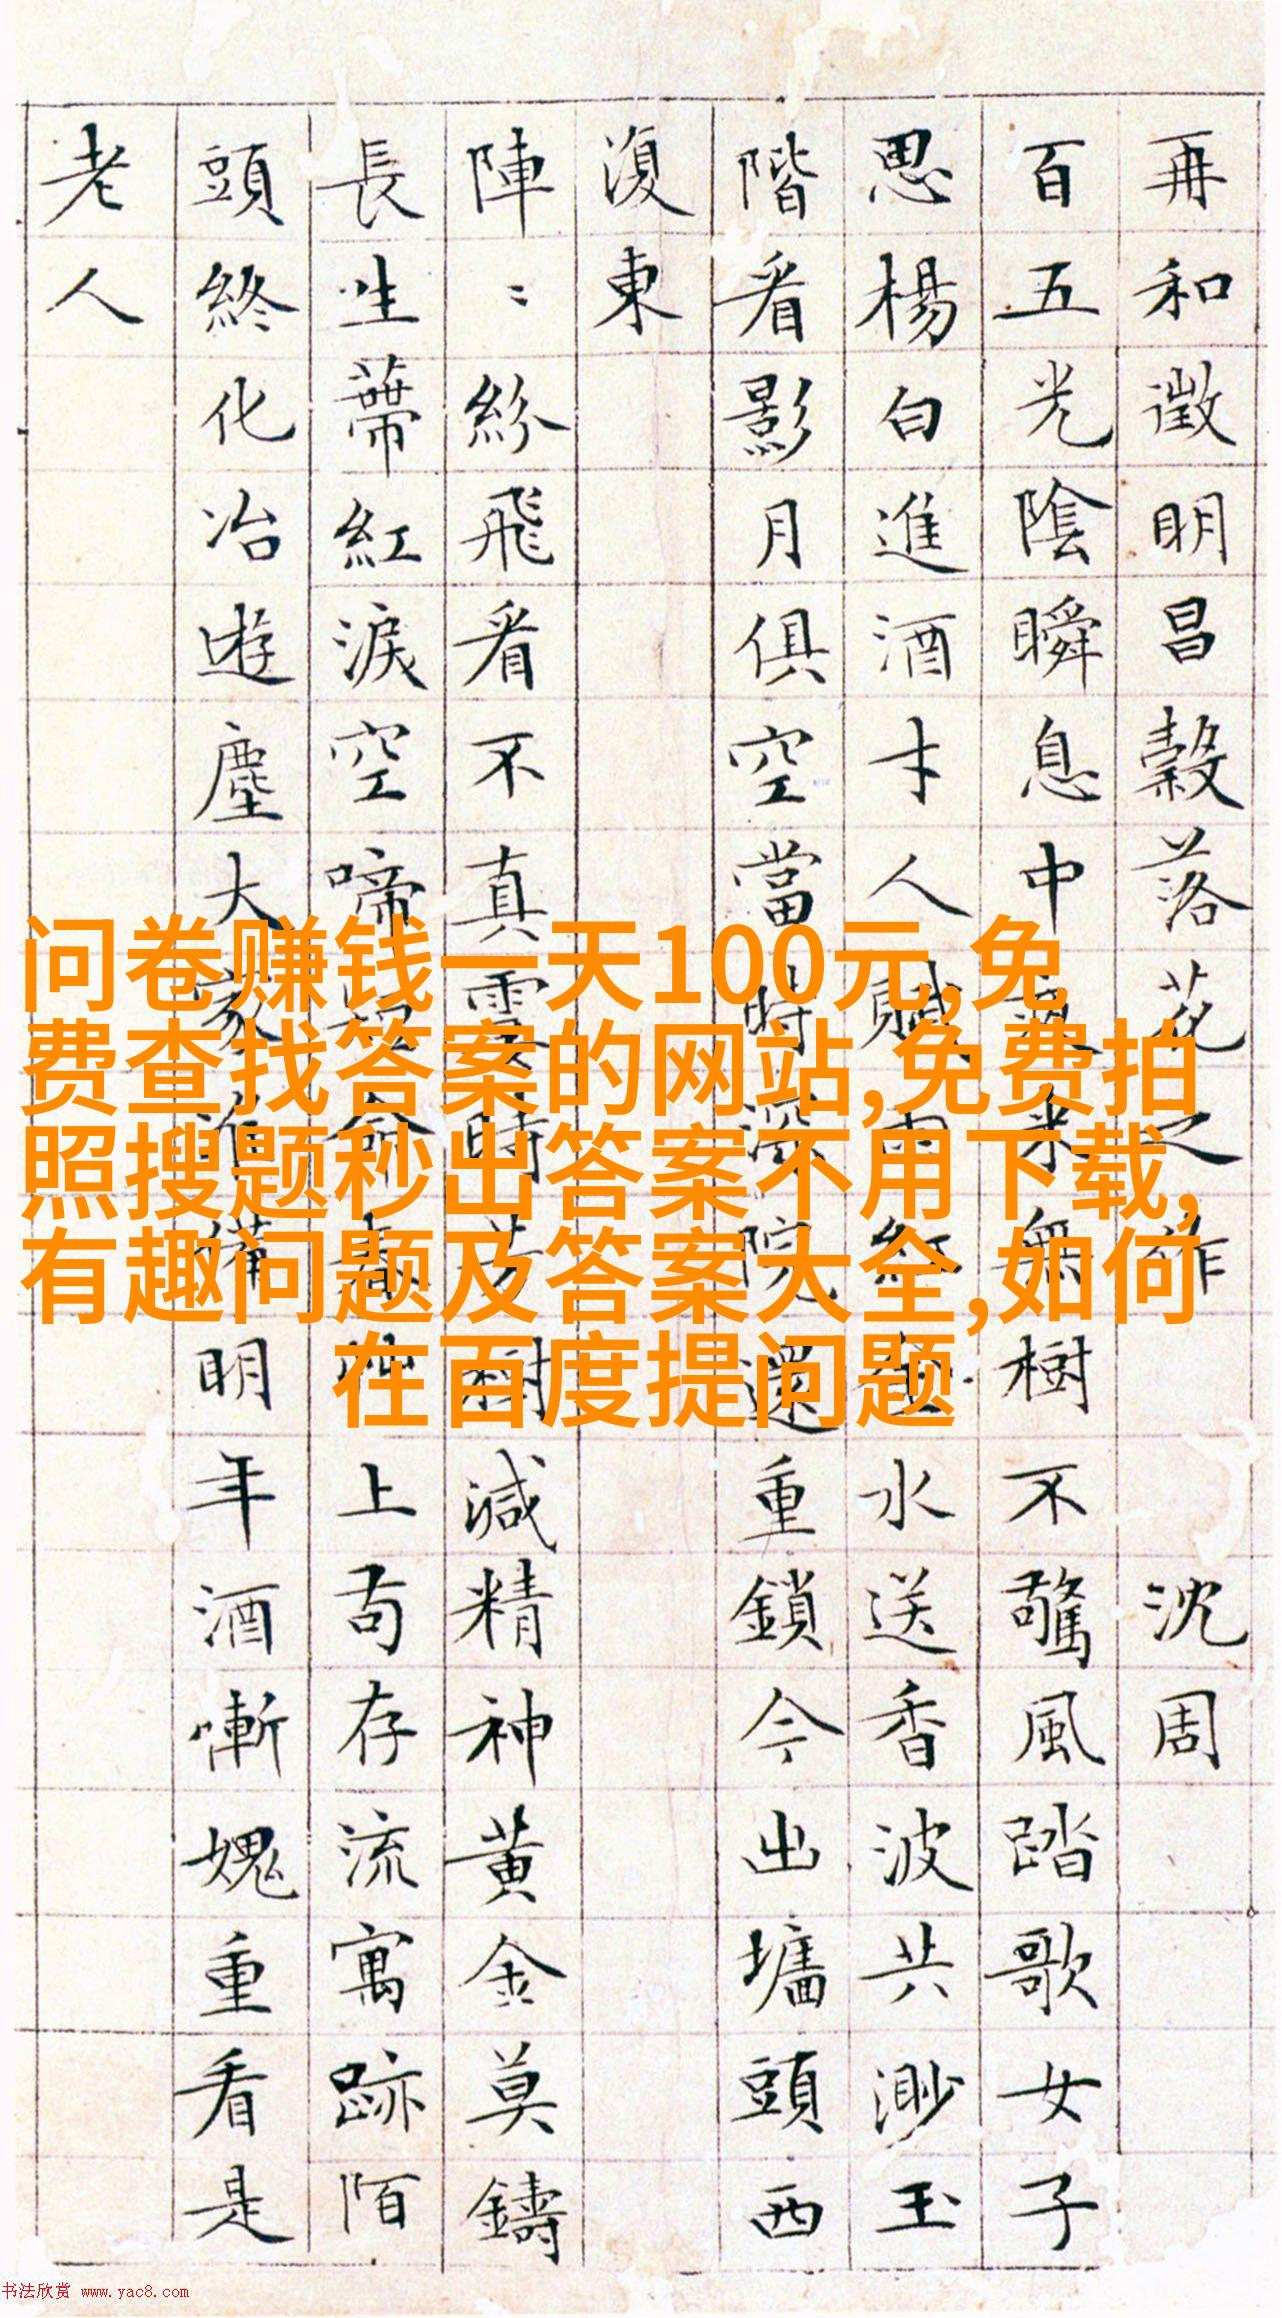 再和徵明昌穀落花之作 沈周
百五光陰瞬息中夜來無樹不驚風踏歌女子
思楊白進酒才人賦雨紅金水送香波共渺玉
階看影月俱空當時深院還重鎖今出墻頭西
復東
陣〻紛飛看不真霎時芳樹減精神黃金莫鑄
長生蒂紅淚空啼短命春草上苟存流寓跡陌
頭終化冶遊塵大家准備明年酒慚愧重看是
老人
问卷赚钱一天100元,免
费查找答案的网站,免费拍
照搜题秒出答案不用下载,
有趣问题及答案大全,如何
在百度提问题
书法欣赏 www.yac8.com